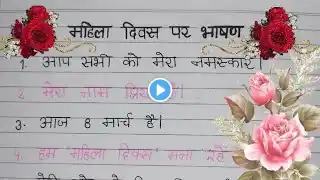 महिला दिवस पर भाषण
1. आप सभी को मेरा नमस्कार।
2. मेरा नाम
3. आज 8 मार्च है।
4. हम "महिला दिवस" मना रहें